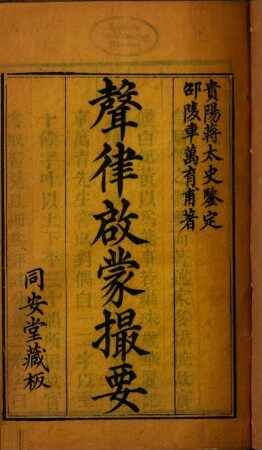 貴陽蔣太史鑒定
邵陵車萬育甫著
聲律啟蒙撮要
同安堂藏板